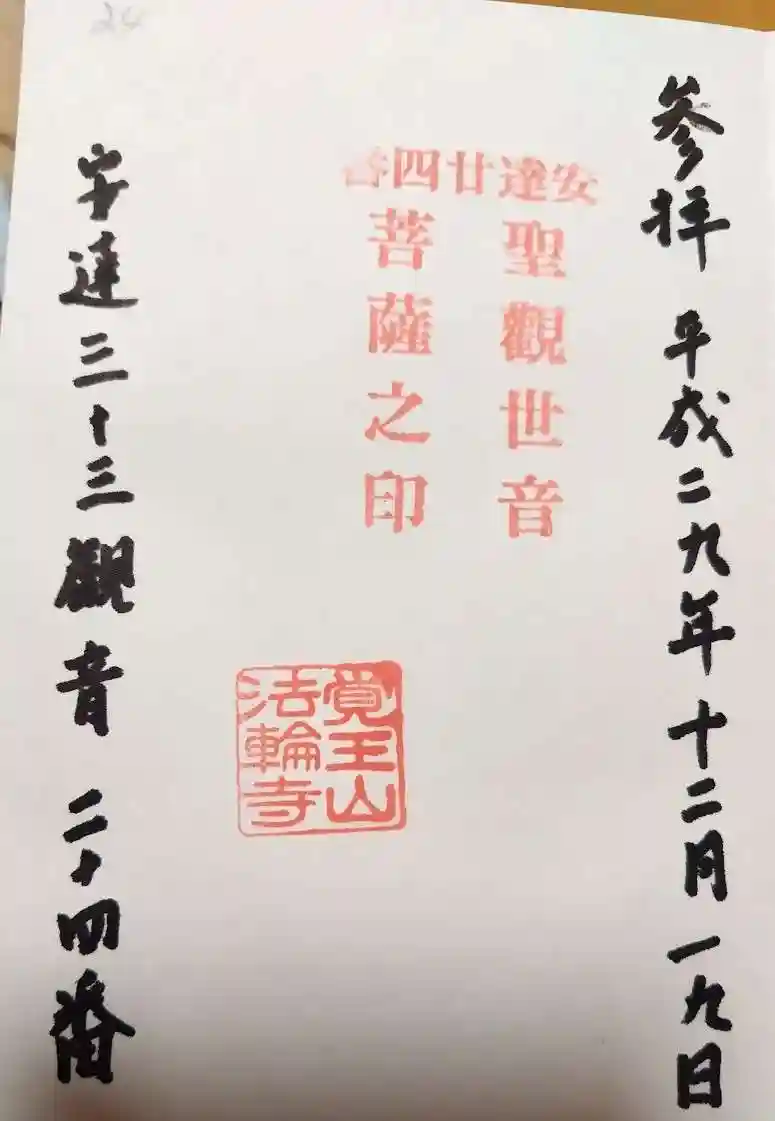 24
参拝 平成二九年十二月一九日
安達廿四番
聖觀世音
菩薩之印
覚王山
法輪寺
安達三十三観音 二十四番